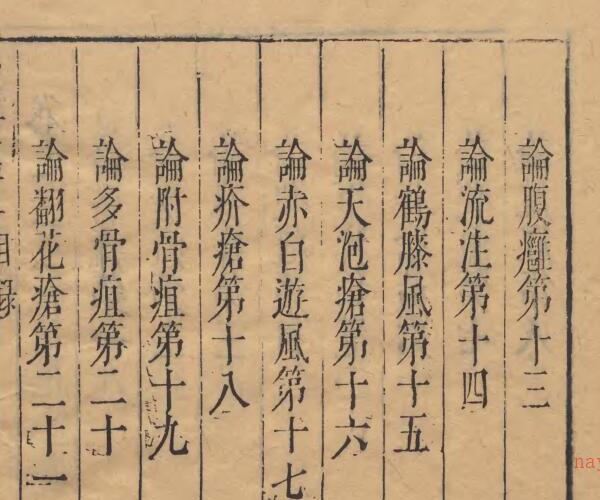 論腹癰第十三
論流注第十四
論鶴膝風第十五
論天泡瘡第十六
論赤白遊風第十七
論疥瘡第十八
論附骨疽第十九
論多骨疽第二十
論翻花瘡第二十一
目錄
nay